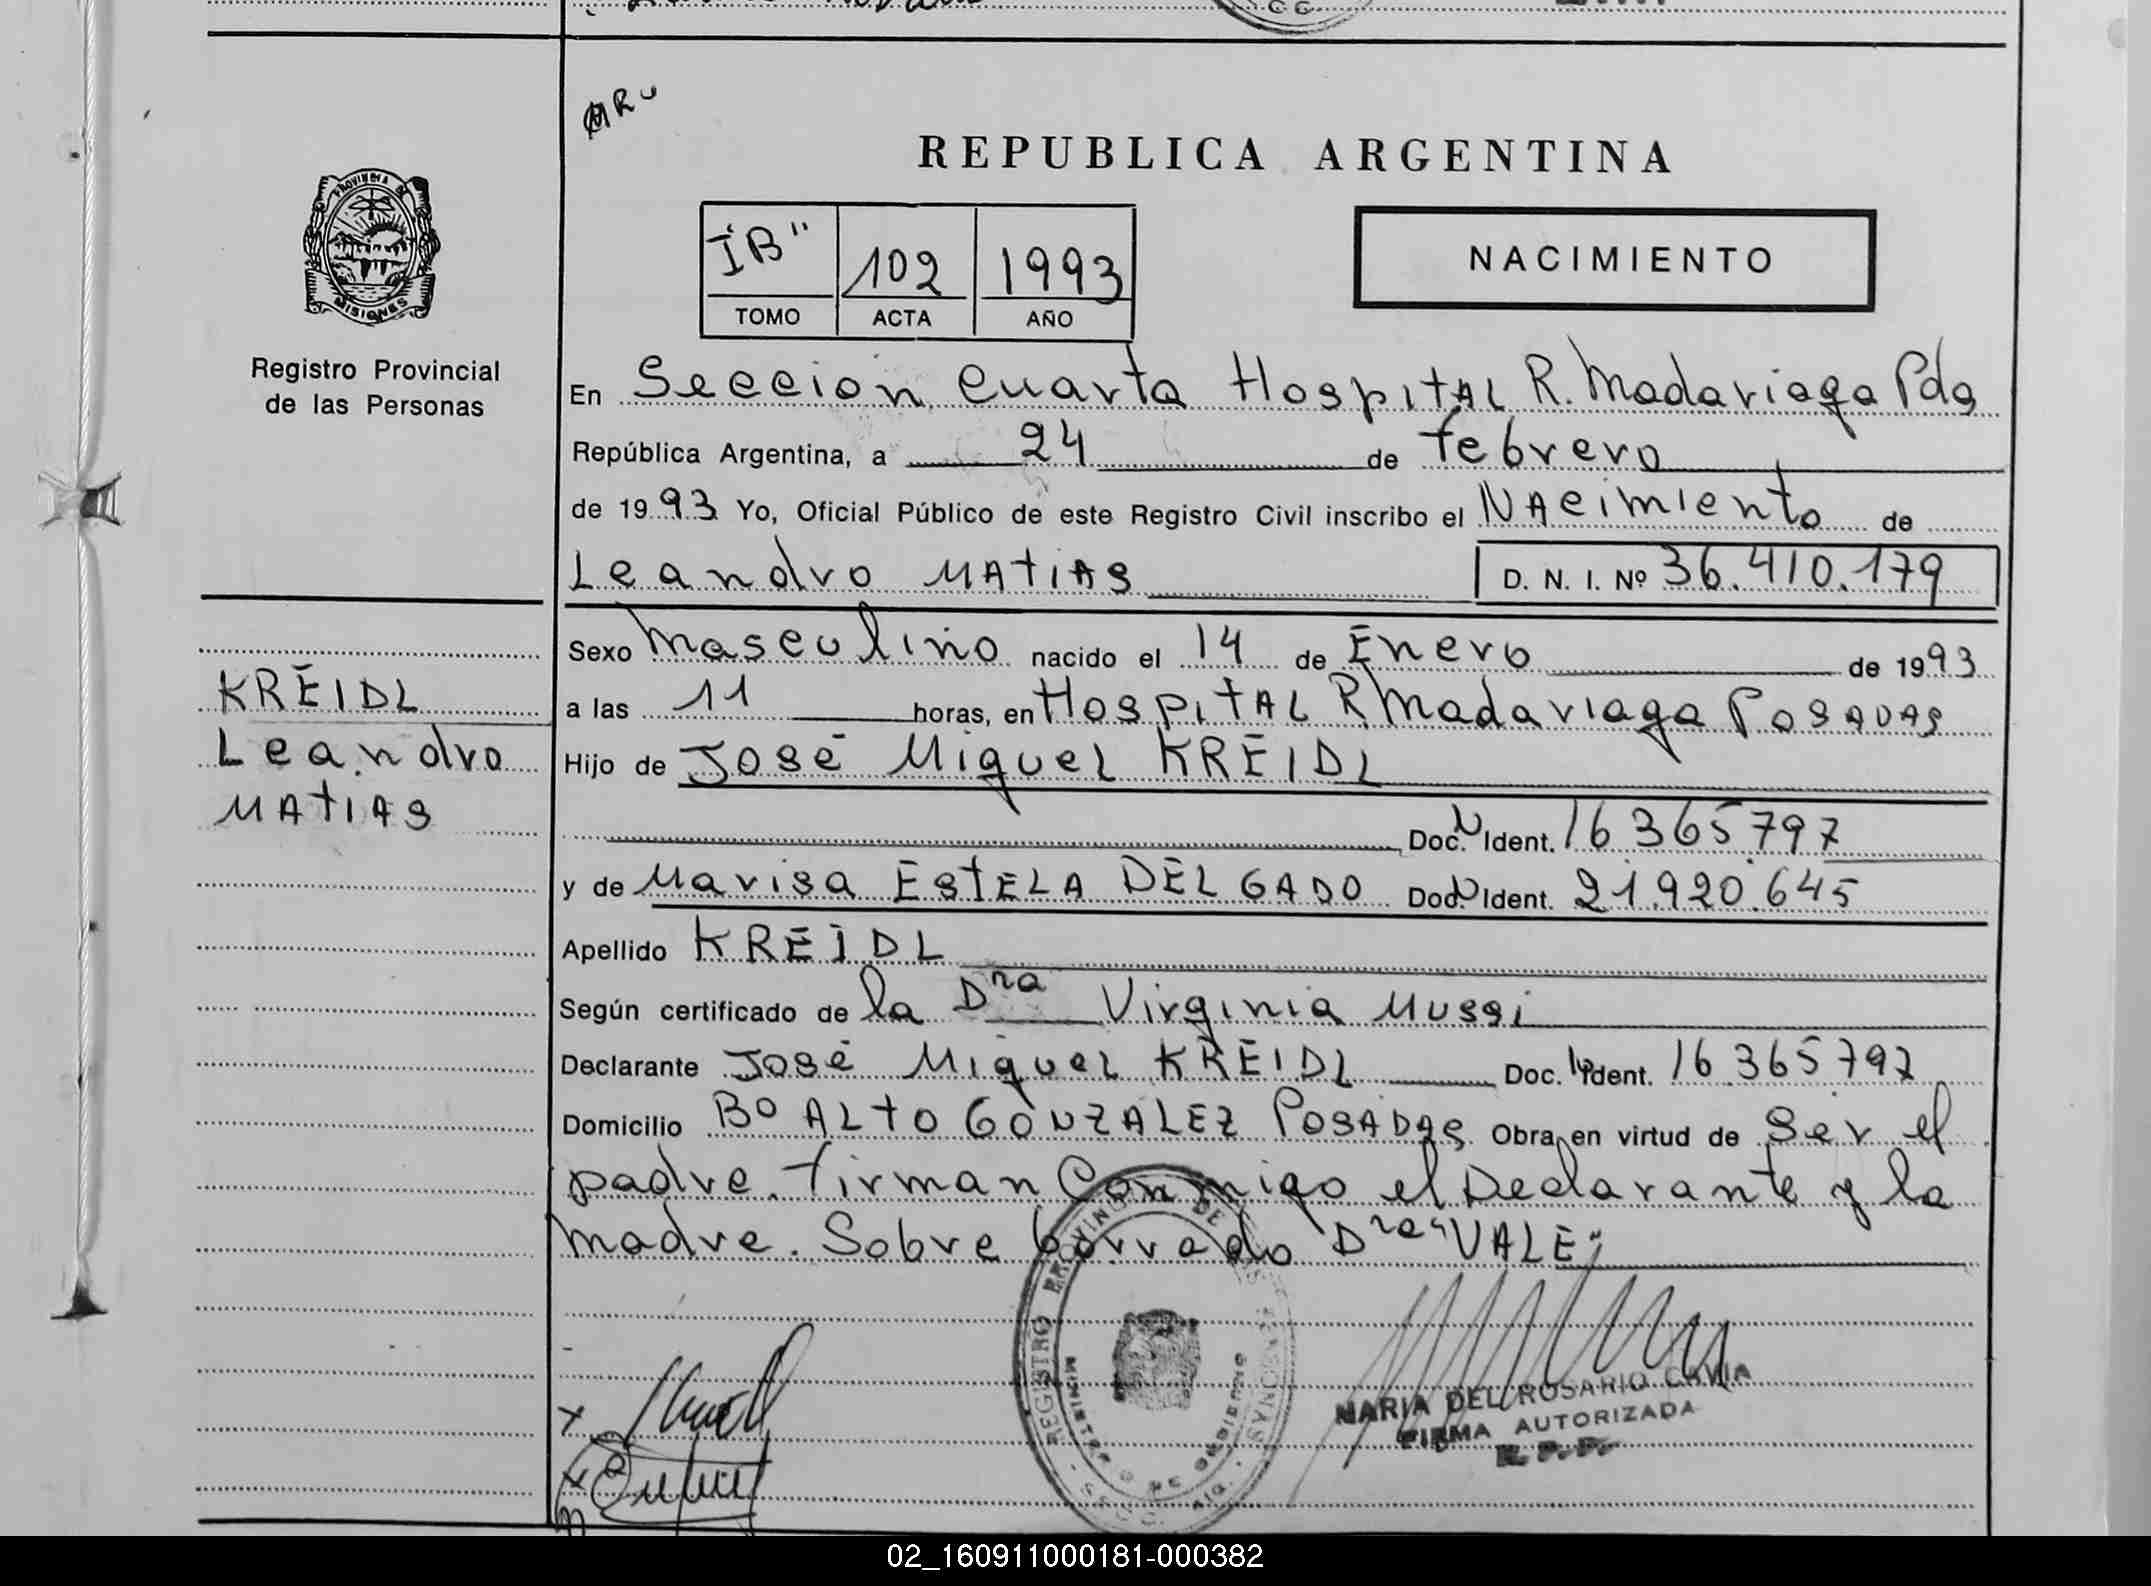 REPUBLICA ARGENTINA
"IB" 102 1993
TOMO ACTA AÑO
NACIMIENTO
PROVINCIA DE
MISIONES
Registro Provincial
de las Personas
En Seccion Cuarta Hospital R. Madariaga Pdas
República Argentina, a 24 de febrero
de 1993 Yo, Oficial Público de este Registro Civil inscribo el Nacimiento de
Leandro MATIAS D. N. I. Nº 36.410.179
Sexo Masculino nacido el 14 de Enero de 1993
a las 11 horas, en Hospital R Madariaga Posadas
Hijo de José Miguel KREIDL
Doc. Ident. 16365797
y de Marisa ESTELA DELGADO Doc. Ident. 21.920.645
Apellido KREIDL
Según certificado de la Dra Virginia Mussi
Declarante José Miguel KREIDL Doc. Ident. 16365797
Domicilio Bº ALTO GONZALEZ POSADAS Obra en virtud de Ser el
padre. firman Conmigo el Declarante y la
madre. Sobre borrado Dra "VALE"
KREIDL
Leandro
MATIAS
REGISTRO PROVINCIAL DE LAS PERSONAS
MINISTERIO DE GOBIERNO
MARIA DEL ROSARIO CAVIA
FIRMA AUTORIZADA
R. P. P.
02_160911000181-000382